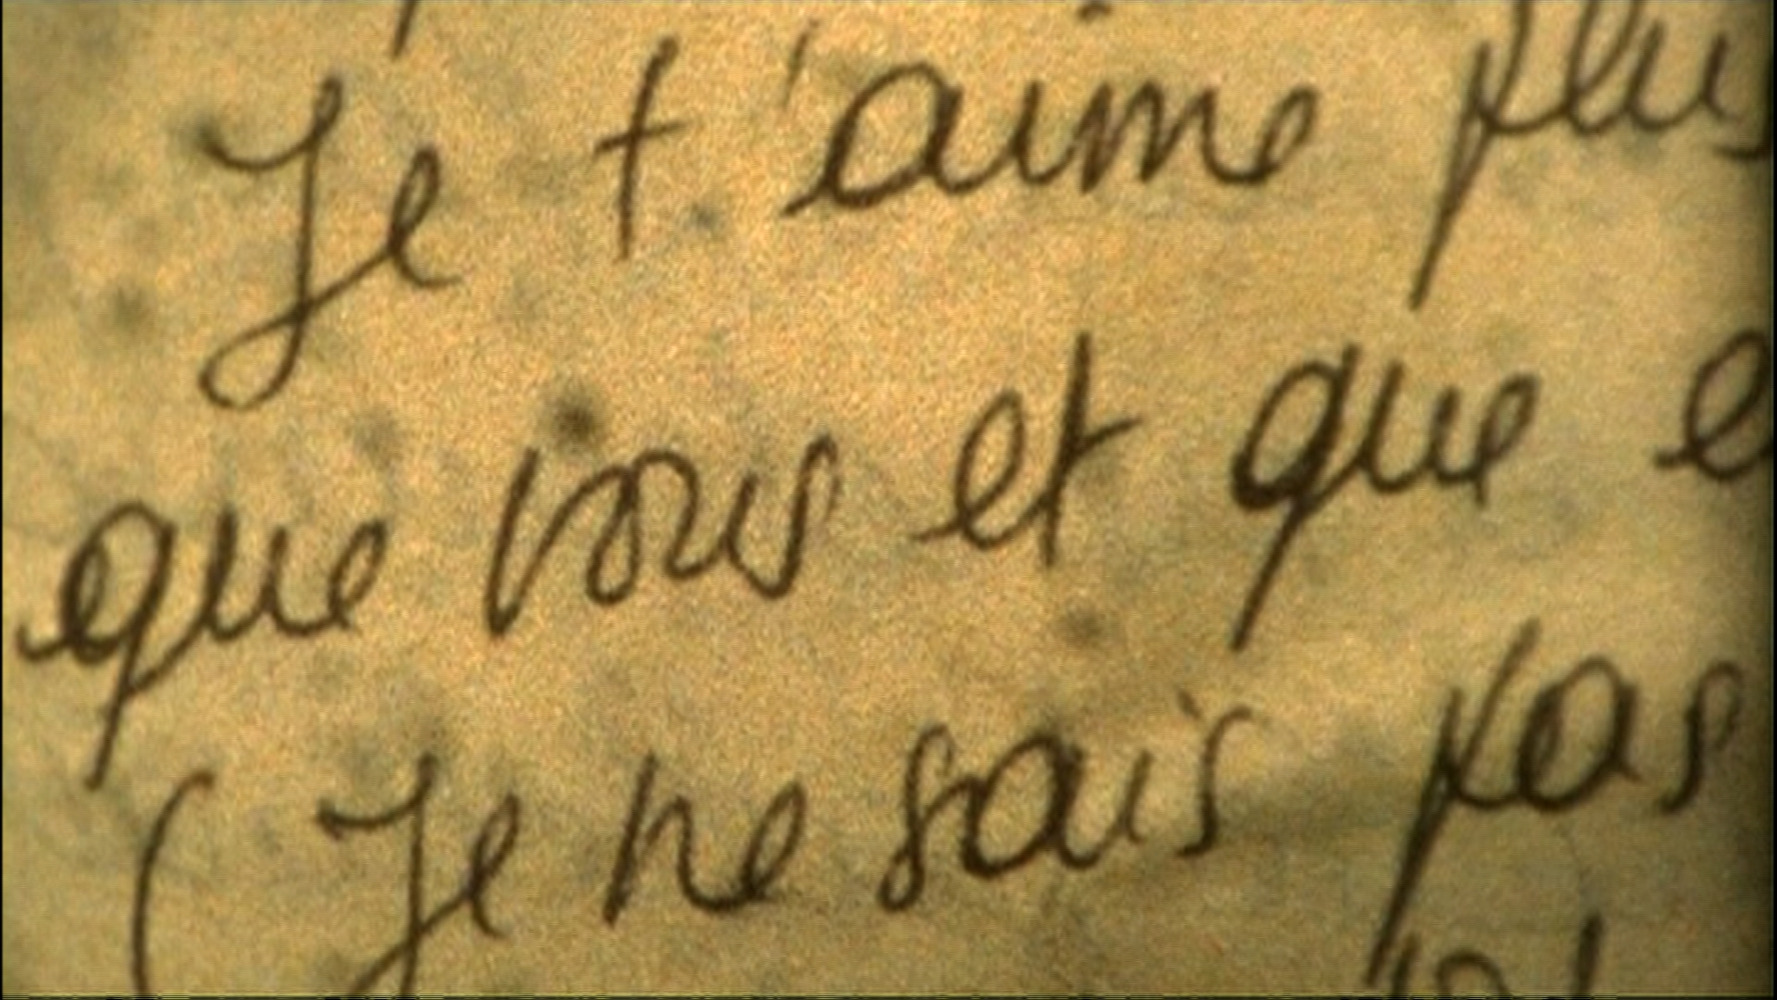 Je t'aime plus
que vous et que
(Je ne sais pas